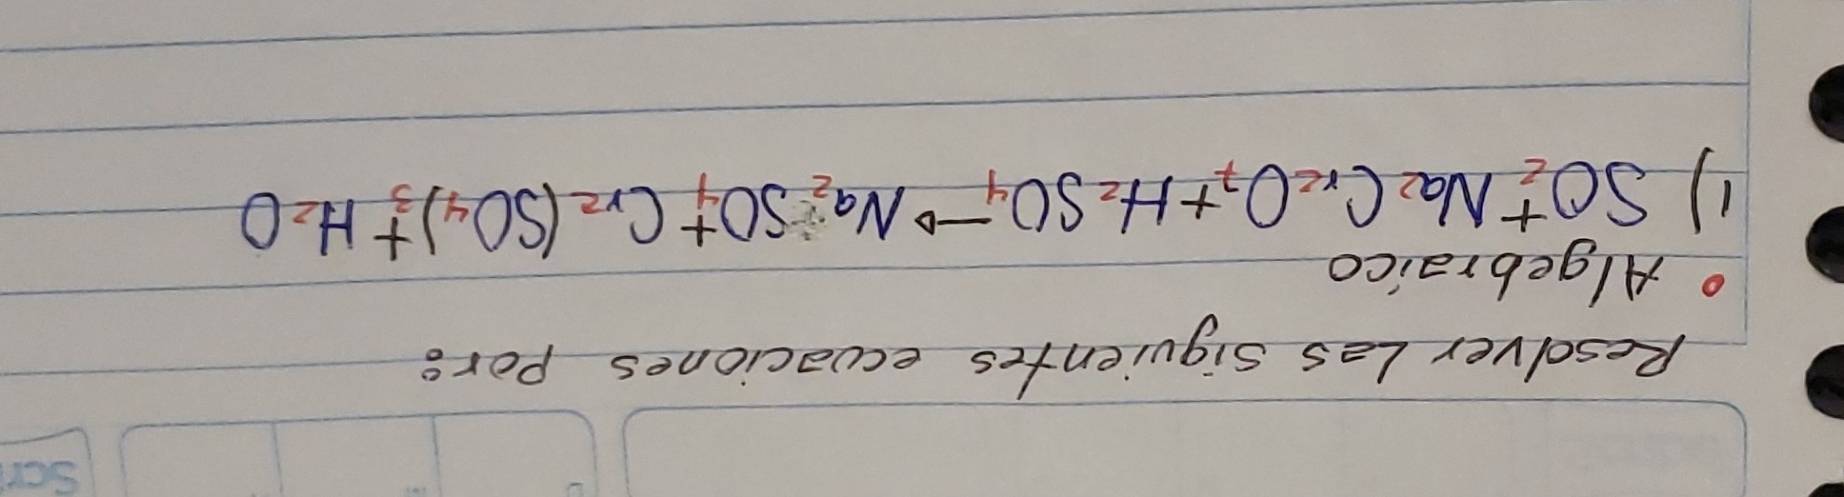 Resolver Las siguientes ecuaciones por:
• Algebraico
1) SO₂ + Na₂Cr₂O₇ + H₂SO₄ → Na₂SO₄ + Cr₂(SO₄)₃ + H₂O